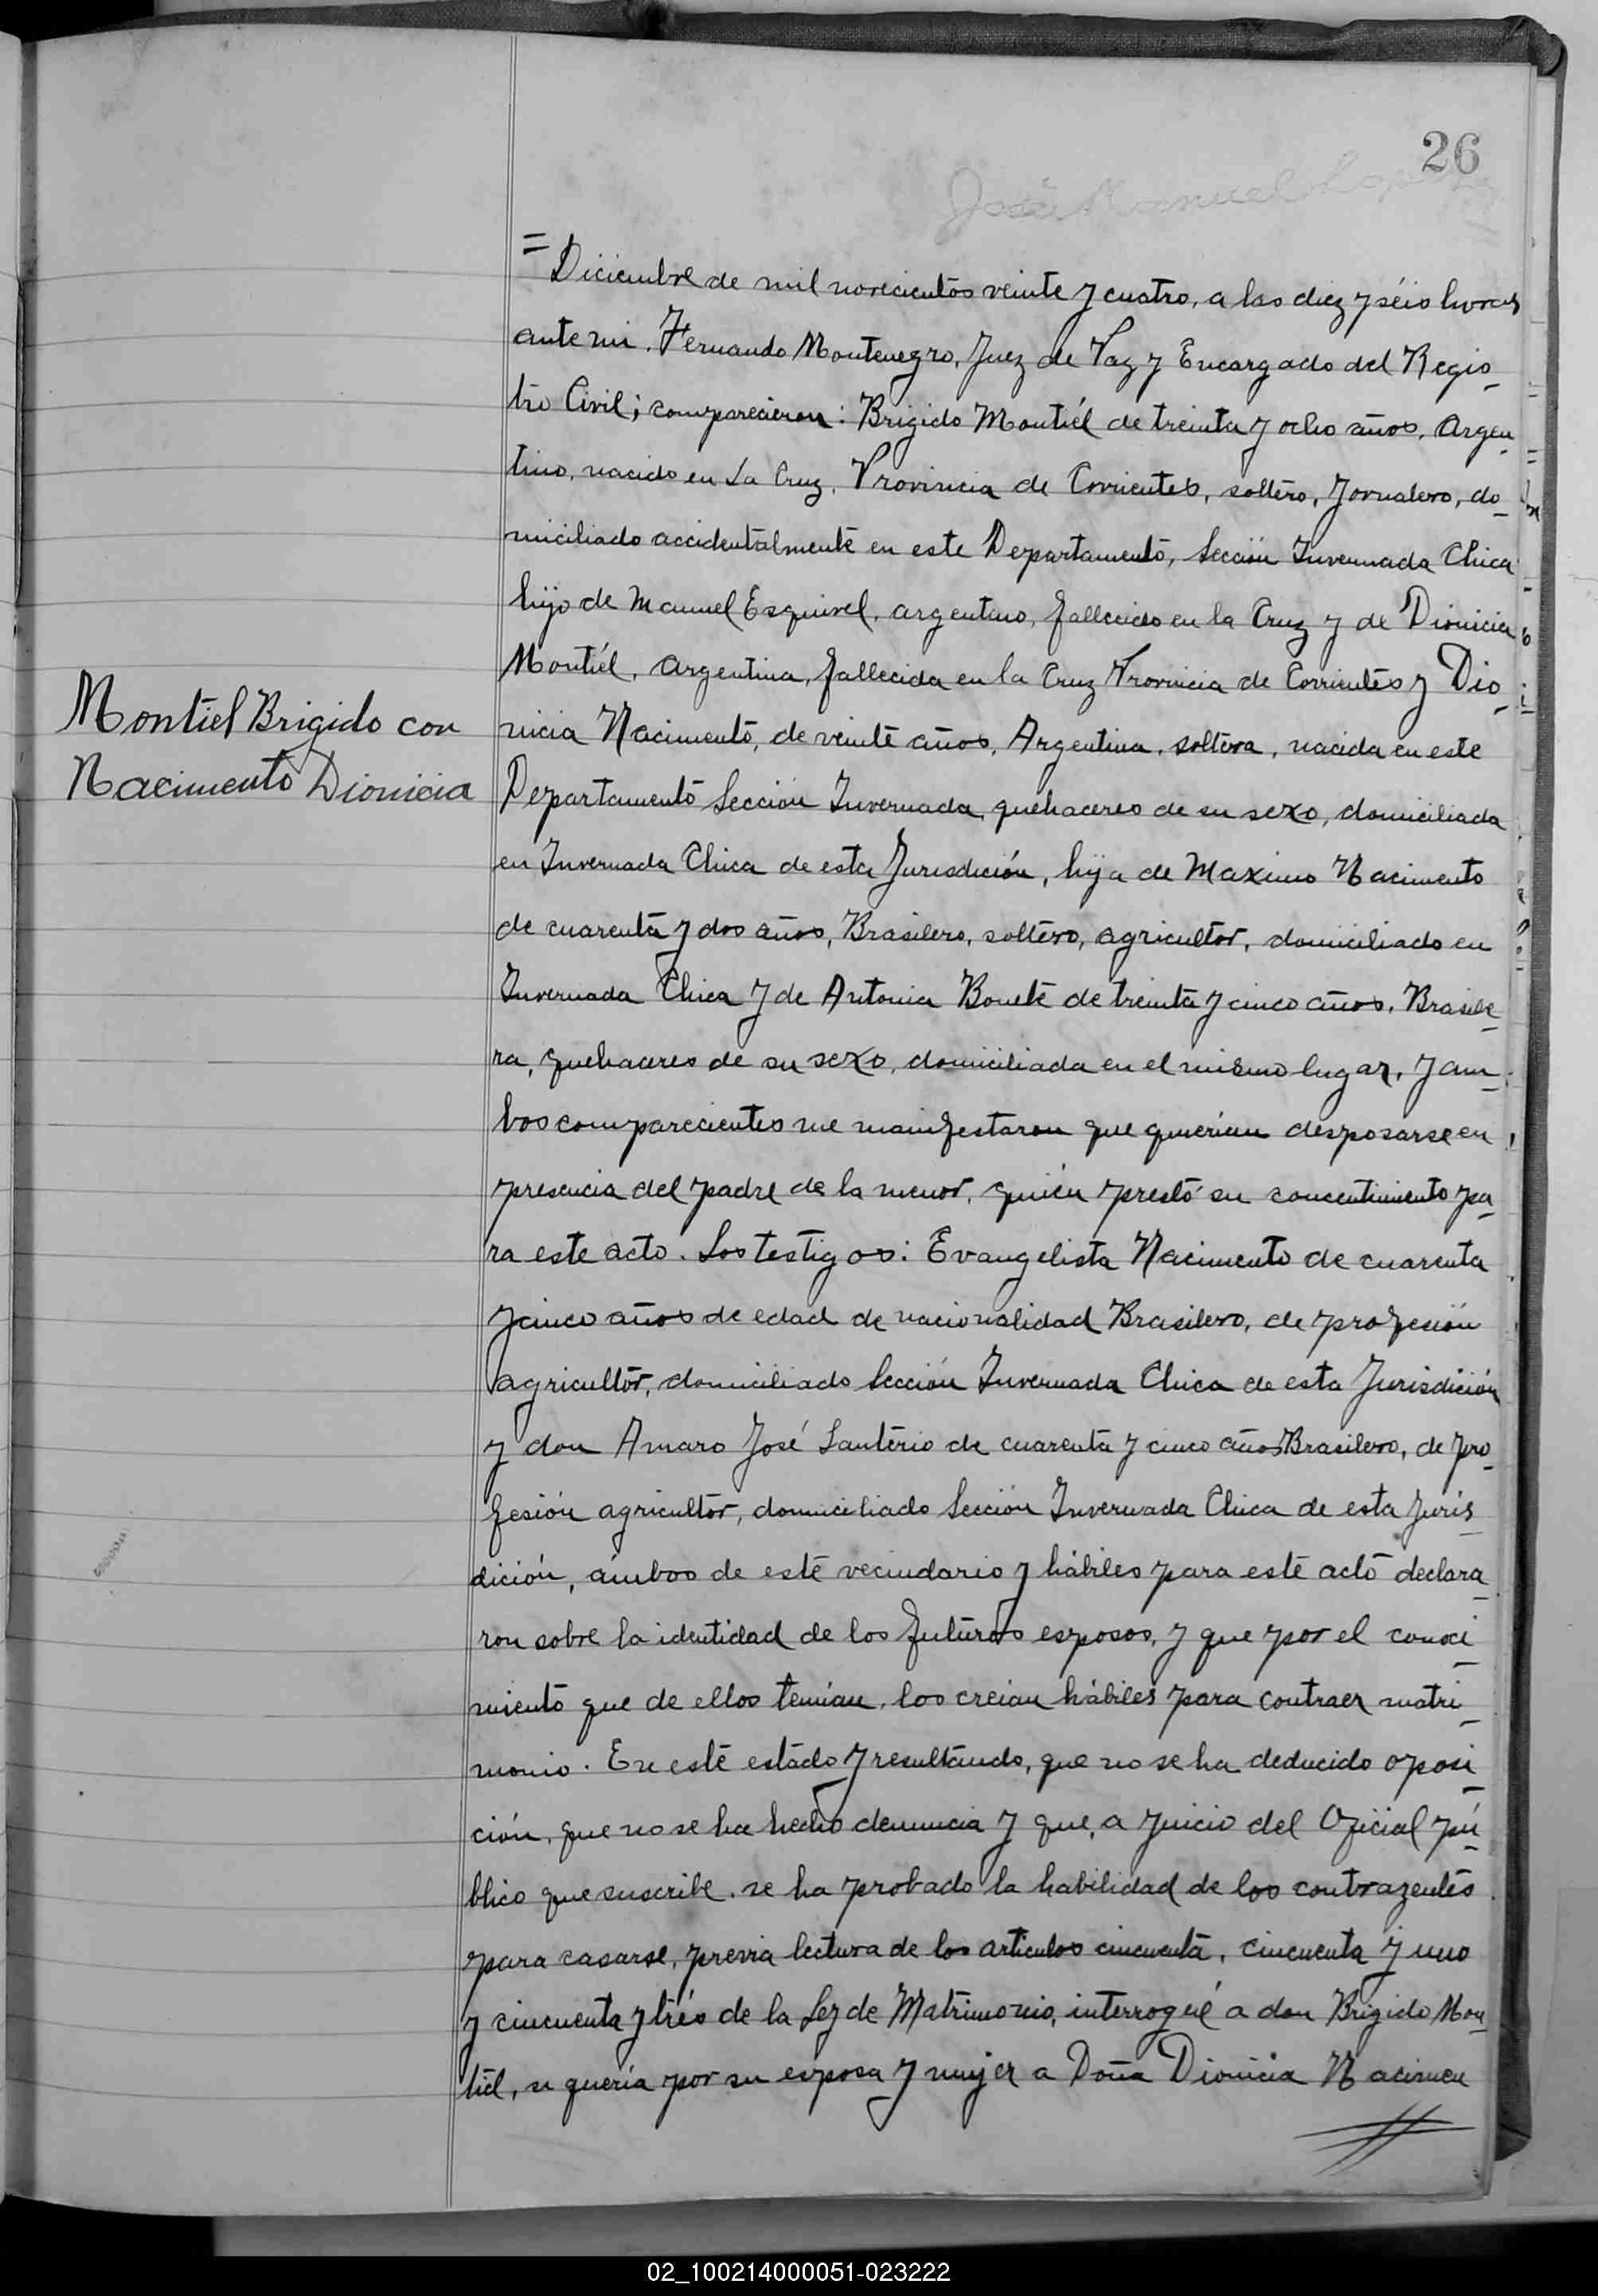 26
José Manuel
= Diciembre de mil novecientos veinte y cuatro, a las diez y séis horas
ante mi. Fernando Montenegro, Juez de Paz y Encargado del Regis_
tro Civil; comparecieron: Brigido Montiél de treinta y ocho años, Argen_
tino, nacido en La Cruz, Provincia de Corrientes, soltero, Jornalero, do_
miciliado accidentalmente en este Departamento, Sección Invernada Chica
hijo de Manuel Esquivel, argentino, fallecido en la Cruz y de Dionicia
Montiél, Argentina, fallecida en la Cruz Provincia de Corrientes y Dio_
Montiel Brigido con
Nacimento Dionicia
nicia Nacimento, de veinte años, Argentina, soltera, nacida en este
Departamento Sección Invernada, quehaceres de su sexo, domiciliada
en Invernada Chica de esta Jurisdición, hija de Maximo Nacimento
de cuarenta y dos años, Brasilero, soltero, agricultor, domiciliado en
Invernada Chica y de Antonia Bouete de treinta y cinco años, Brasile_
ra, quehaceres de su sexo, domiciliada en el mismo lugar, y am_
bos comparecientes me manifestaron que querian desposarse en
presencia del padre de la menor, quién prestó su concentimiento pa_
ra este acto. Los testigos: Evangelista Nacimento de cuarenta
y cinco años de edad de nacionalidad Brasilero, de profesión
agricultor, domiciliado Sección Invernada Chica de esta Jurisdición
y don Amaro José Santerio de cuarenta y cinco años Brasilero, de pro_
fesión agricultor, domiciliado Sección Invernada Chica de esta Juris_
dición, ámbos de este vecindario y hábiles para este acto declara_
ron sobre la identidad de los futuros esposos, y que por el conoci_
miento que de ellos tenian, los creian hábiles para contraer matri_
monio. En este estado y resultando, que no se ha deducido oposi_
ción, que no se ha hecho denuncia y que, a juicio del Oficial pú_
blico que suscribe, se ha probado la habilidad de los contrayentes
para casarse, previa lectura de los articulos cincuenta, cincuenta y uno
y cincuenta y trés de la Ley de Matrimonio, interrogué a don Brigido Mon_
tiél, si queria por su esposa y mujer a Doña Dionicia Nacimen
02_100214000051-023222